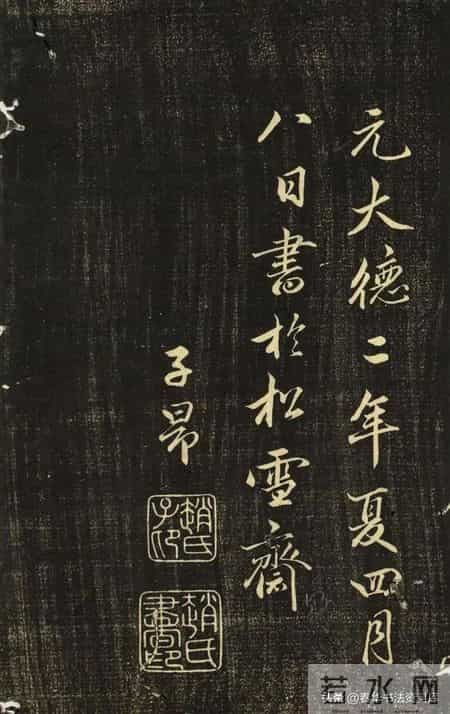 元大德二年夏四月
八日書於松雪齋
子昂
趙氏子印
趙氏書印
若水网